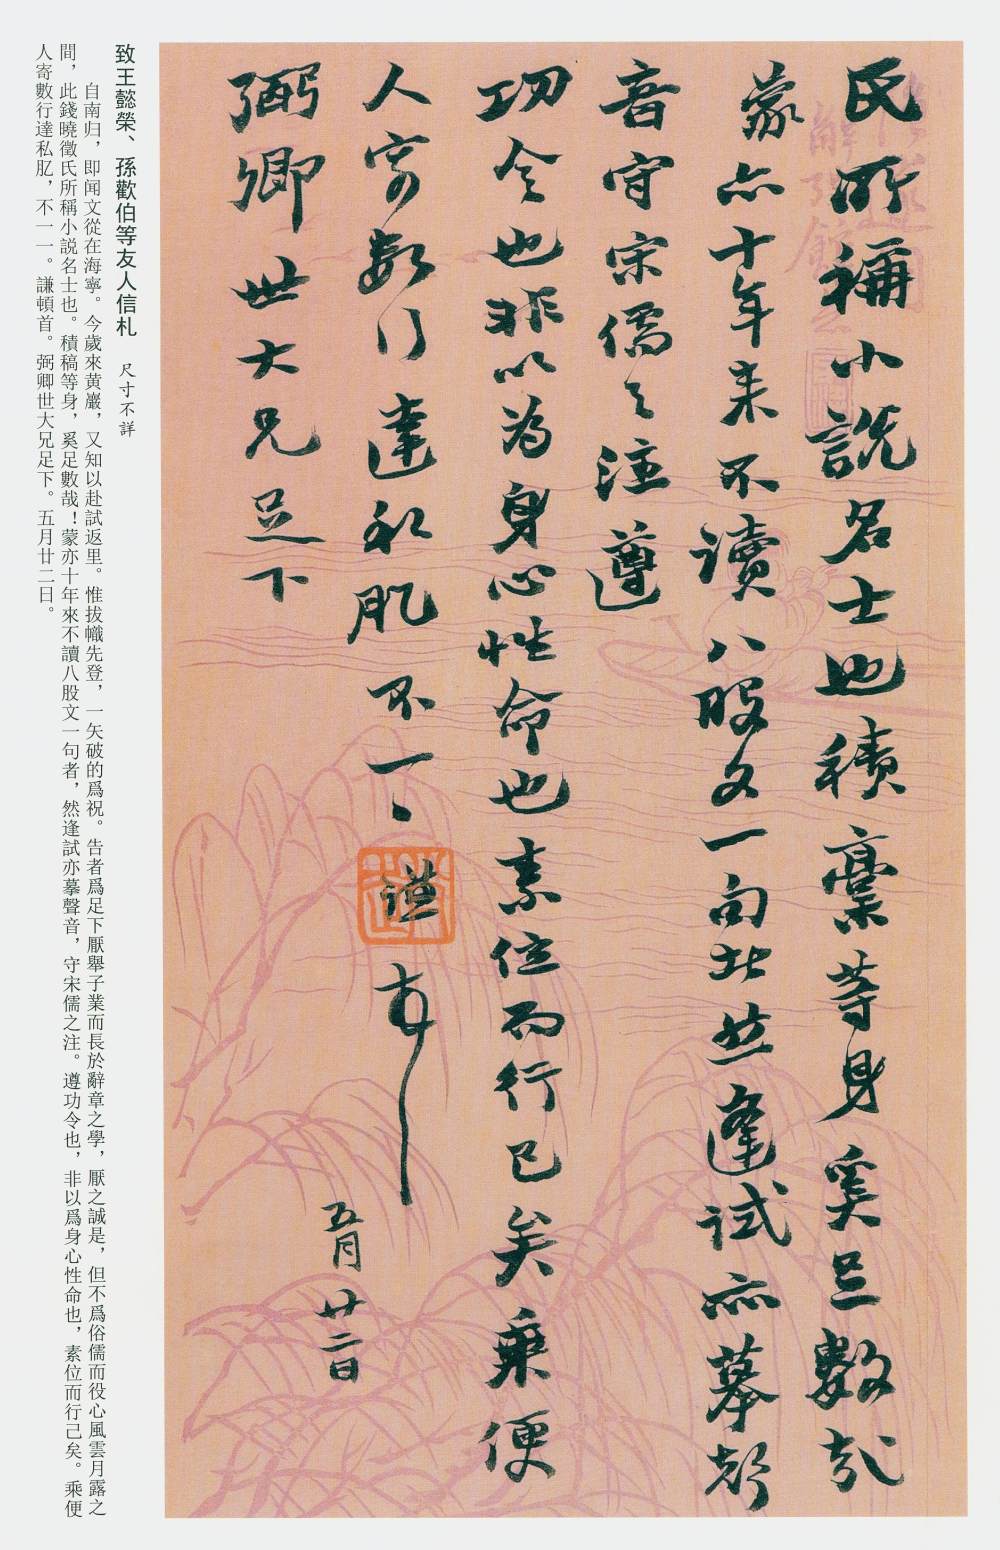 氏所稱小說名士也積稾等身奚足數哉
蒙亦十年來不讀八股文一句者然逢試亦摹聲
音守宋儒之注遵
功令也非以為身心性命也素位而行已矣乘便
人寄數行達私肊不一一謙頓首
五月廿二日
弼卿世大兄足下
致王懿榮、孫歡伯等友人信札 尺寸不詳
自南归，即闻文從在海寧。今歲來黄巖，又知以赴試返里。惟拔幟先登，一矢破的爲祝。告者爲足下厭舉子業而長於辭章之學，厭之誠是，但不爲俗儒而役心風雲月露之
間，此錢曉徵氏所稱小説名士也。積稿等身，奚足數哉！蒙亦十年來不讀八股文一句者，然逢試亦摹聲音，守宋儒之注。遵功令也，非以爲身心性命也，素位而行己矣。乘便
人寄數行達私肊，不一一。謙頓首。弼卿世大兄足下。五月廿二日。